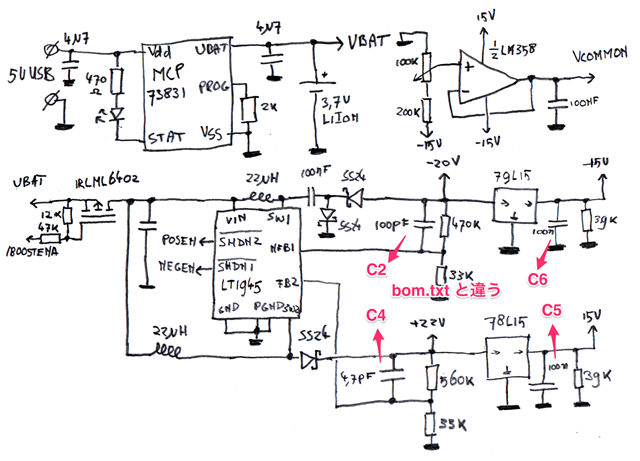 4µ7
5V USB
470
Ω
Vdd
MCP
73831
STAT
VBAT
PROG
VSS
2K
4µ7
VBAT
+
3,7V
LiIon
100K
200K
-15V
15V
½ LM358
+
-
-15V
VCOMMON
100nF
VBAT
IRLML6402
12K
47K
/BOOSTENA
22µH
100nF
SS24
SS24
VIN
SW1
POSEN
SHDN2
NEGEN
SHDN1
LT1945
NFB1
FB2
GND
PGND
SW2
22µH
SS24
-20V
100pF
470K
33K
C2
bom.txt と違う
79L15
-15V
100n
39K
C6
C4
+22V
4,7pF
560K
33K
78L15
C5
15V
100n
39K